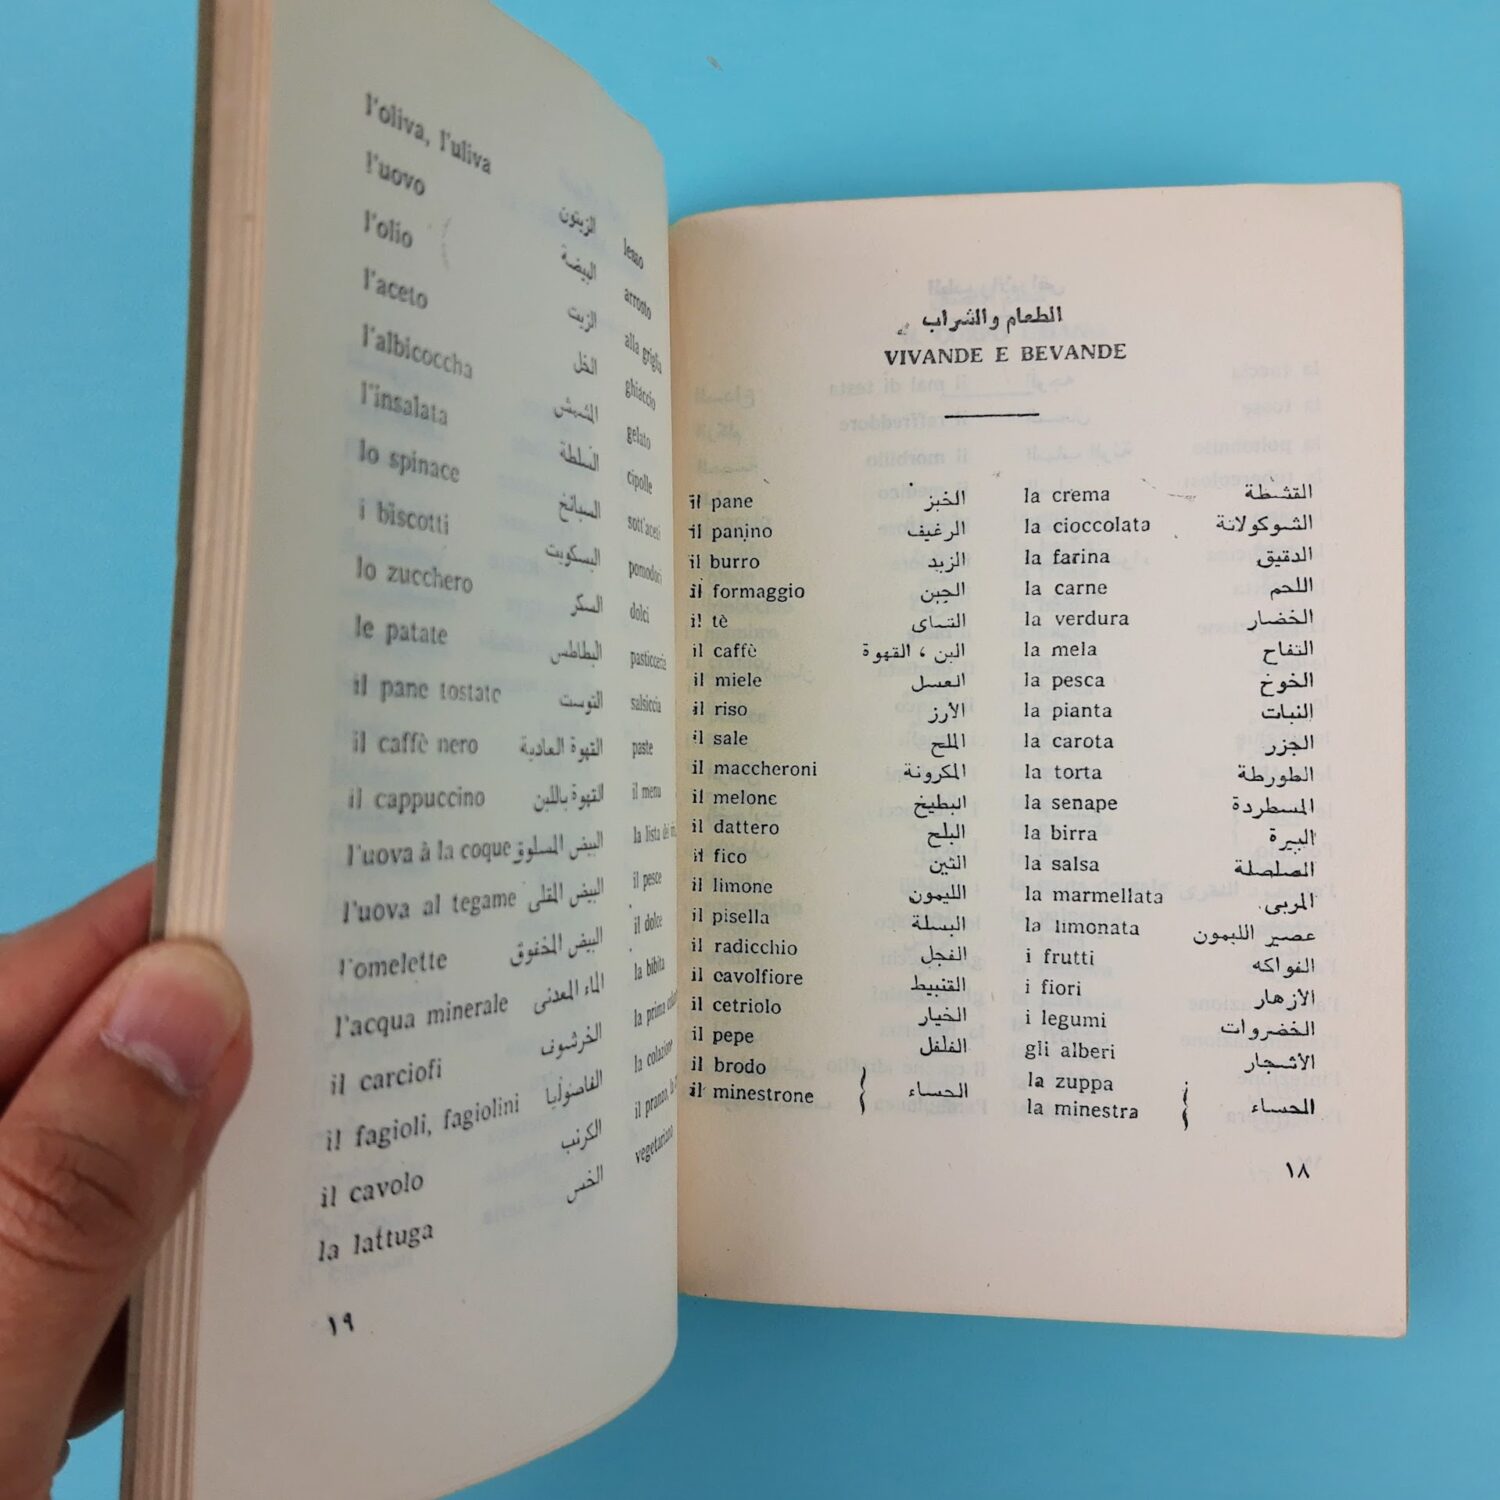 الطعام والشراب
VIVANDE E BEVANDE
il pane الخبز la crema القشطة
il panino الرغيف la cioccolata الشوكولاتة
il burro الزبد la farina الدقيق
il formaggio الجبن la carne اللحم
il tè الشاى la verdura الخضار
il caffè البن ، القهوة la mela التفاح
il miele العسل la pesca الخوخ
il riso الأرز la pianta النبات
il sale الملح la carota الجزر
il maccheroni المكرونة la torta الطورطة
il melone البطيخ la senape المسطردة
il dattero البلح la birra البيرة
il fico التين la salsa الصلصلة
il limone الليمون la marmellata المربى
il pisella البسلة la limonata عصير الليمون
il radicchio الفجل i frutti الفواكه
il cavolfiore القنبيط i fiori الأزهار
il cetriolo الخيار i legumi الخضروات
il pepe الفلفل gli alberi الأشجار
il brodo la zuppa
il minestrone الحساء la minestra الحساء
١٨
l'oliva, l'uliva الزيتون lesso
l'uovo البيضة arrosto
l'olio الزيت alla griglia
l'aceto الخل ghiaccio
l'albicoccha المشمش gelato
l'insalata السلطة cipolle
lo spinace السبانخ sott'aceti
i biscotti البسكويت pomodori
lo zucchero السكر dolci
le patate البطاطس pasticceria
il pane tostate التوست salsiccia
il caffè nero القهوة العادية paste
il cappuccino القهوة باللبن il menu
l'uova à la coque البيض المسلوق la lista
l'uova al tegame البيض المقلى il pesce
l'omelette البيض المخفوق il dolce
l'acqua minerale الماء المعدنى la bibita
il carciofi الخرشوف la prima
il fagioli, fagiolini الفاصوليا la colazione
il cavolo الكرنب il pranzo,
la lattuga الخس vegetariano
١٩